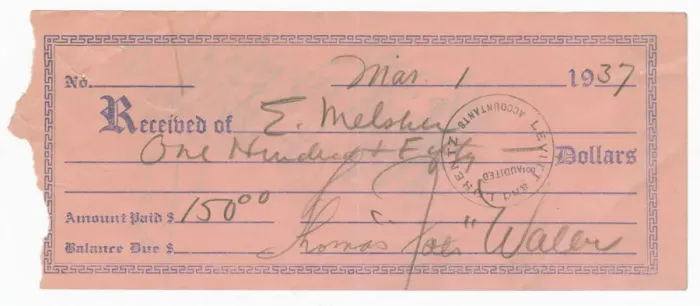 No. Mar. 1 1937
Received of E. Melsher
One Hundred + Fifty — Dollars
LEVITT AND LORENTZ
ACCOUNTANTS
AUDITED
Amount Paid $ 150 00
Balance Due $ Thomas "Fats" Waller